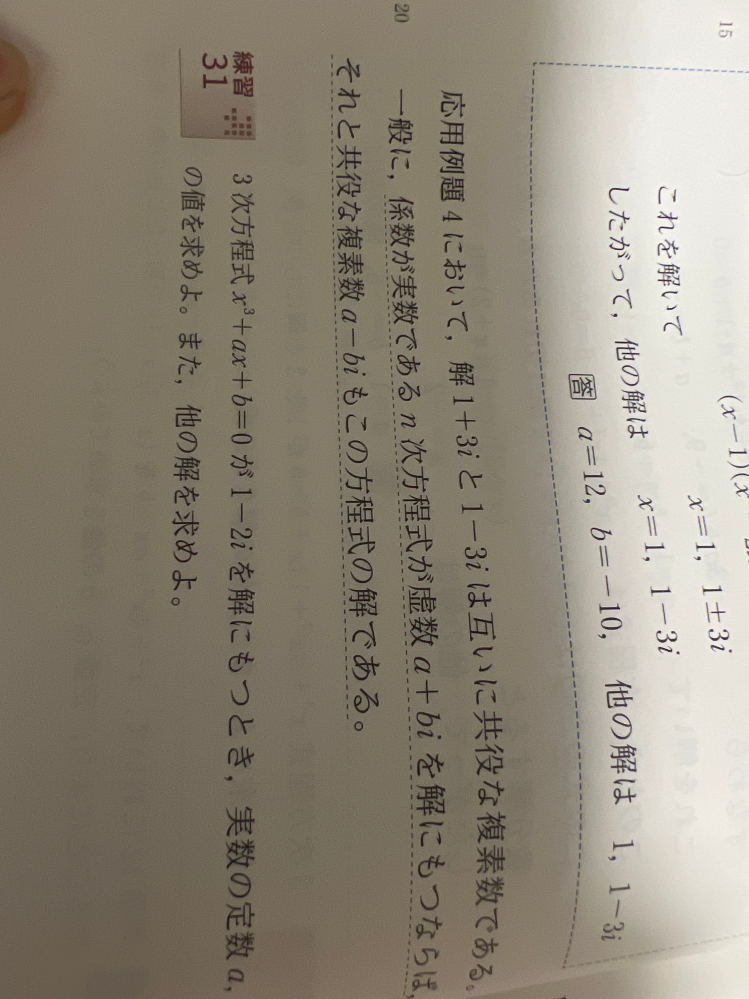 (x−1)(x
x=1, 1±3i
これを解いて x=1, 1−3i
15
したがって，他の解は
答 a=12, b=−10, 他の解は 1, 1−3i
応用例題 4 において，解 1+3i と 1−3i は互いに共役な複素数である。
一般に，係数が実数である n 次方程式が虚数 a+bi を解にもつならば，
20
それと共役な複素数 a−bi もこの方程式の解である。
練習 31
3 次方程式 x³+ax+b=0 が 1−2i を解にもつとき，実数の定数 a,
の値を求めよ。また，他の解を求めよ。